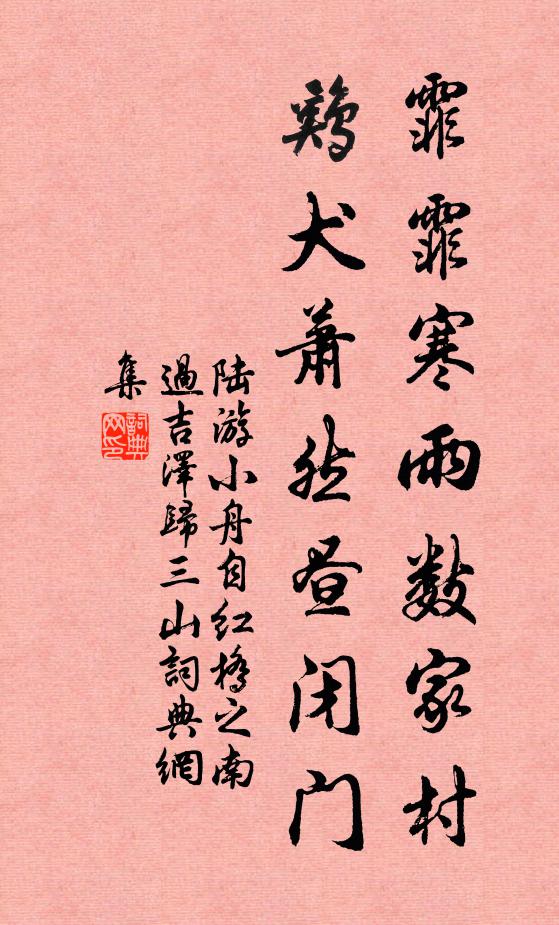 霏霏寒雨数家村
鷄犬萧然昼闭门
陆游小舟自红桥之南
過吉澤歸三山詞典網
集
詞典网印